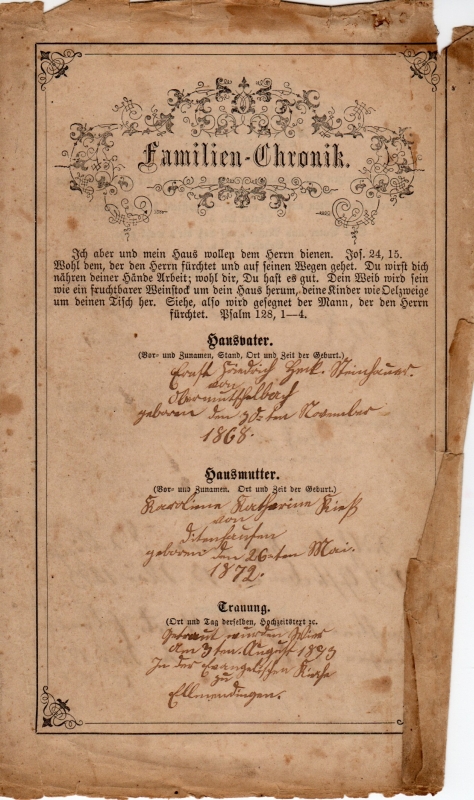 Familien-Chronik.
Ich aber und mein Haus wollen dem Herrn dienen. Jos. 24, 15.
Wohl dem, der den Herrn fürchtet und auf seinen Wegen gehet. Du wirst dich
nähren deiner Hände Arbeit; wohl dir, Du hast es gut. Dein Weib wird sein
wie ein fruchtbarer Weinstock um dein Haus herum, deine Kinder wie Oelzweige
um deinen Tisch her. Siehe, also wird gesegnet der Mann, der den Herrn
fürchtet. Psalm 128, 1—4.
Hausvater.
(Vor- und Zunamen, Stand, Ort und Zeit der Geburt.)
Ernst Friedrich Steinhauer.
von
Obermutschelbach
geboren den November
1868.
Hausmutter.
(Vor- und Zunamen. Ort und Zeit der Geburt.)
Karoliene Katharine Kieß
von
Ditenhausen
geboren den 26-ten Mai.
1872.
Trauung.
(Ort und Tag derselben, Hochzeitstext ꝛc.
Getraut wurden Wier
Am 3ten August 1893
In der Evangelischen Kirche
zu
Ellmendingen.